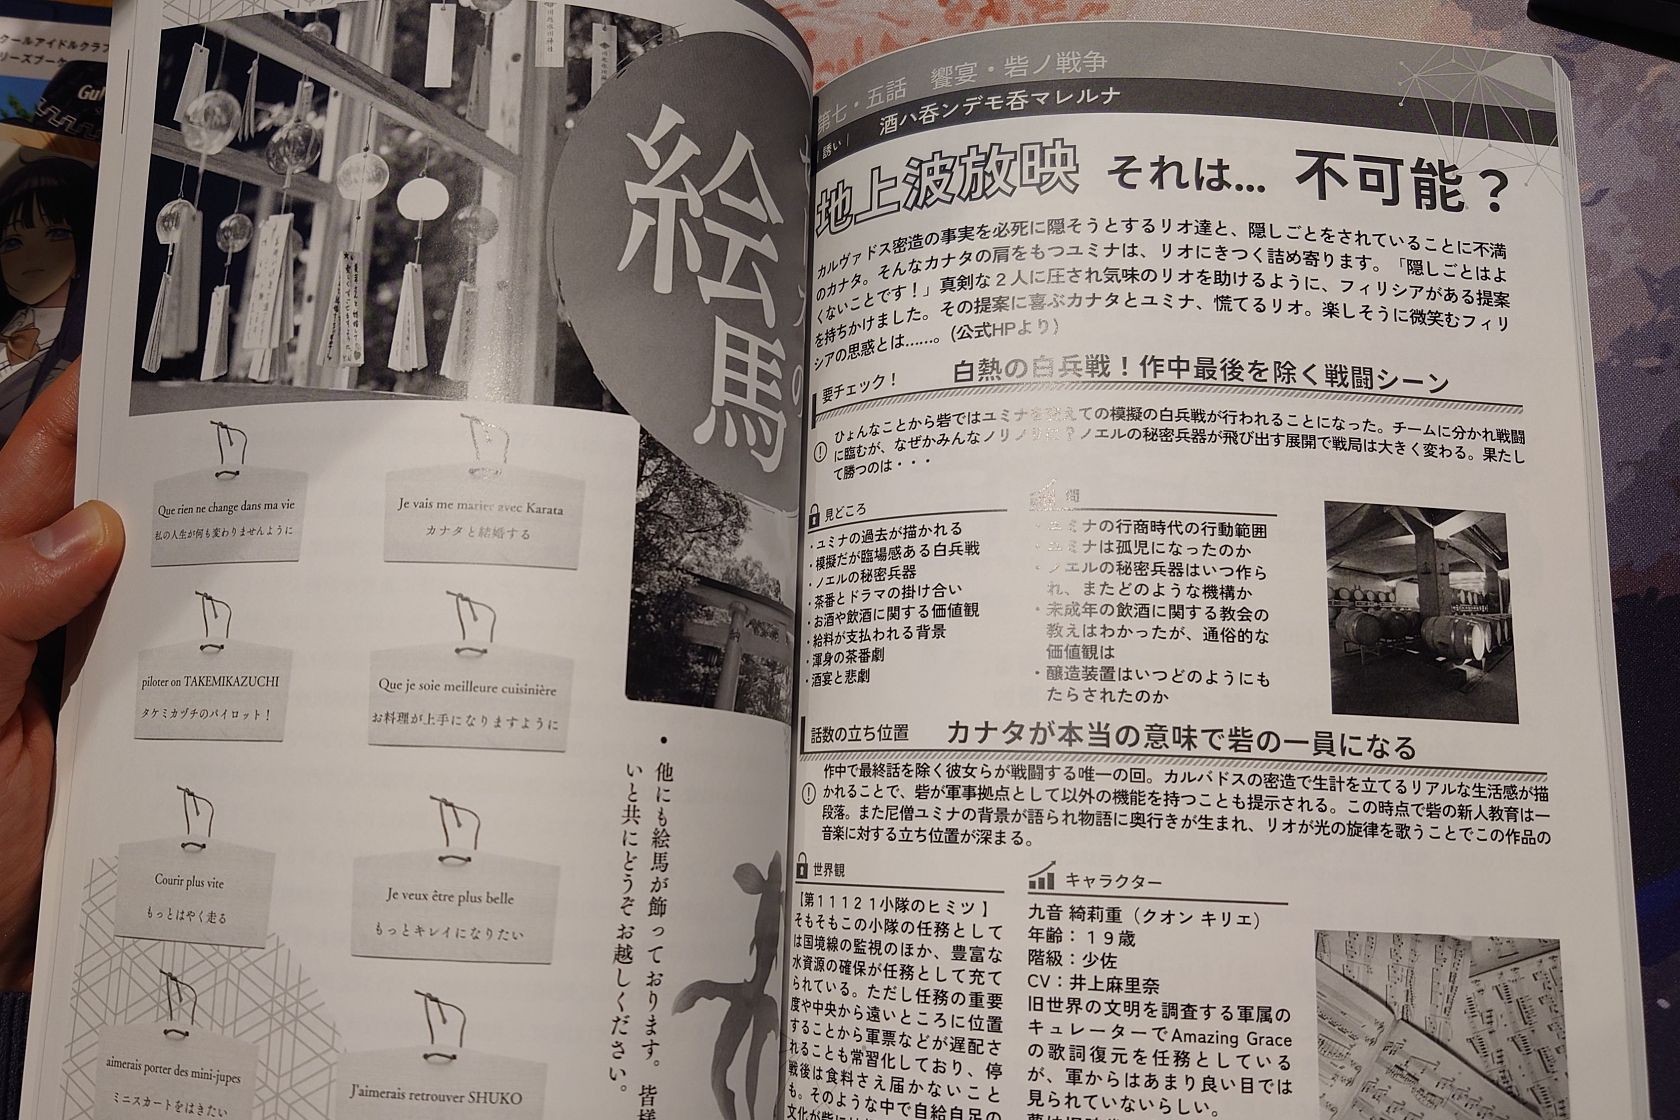 絵馬
Que rien ne change dans ma vie
私の人生が何も変わりませんように
Je vais me marier avec Karata
カナタと結婚する
piloter on TAKEMIKAZUCHI
タケミカヅチのパイロット！
Que je soie meilleure cuisinière
お料理が上手になりますように
Courir plus vite
もっとはやく走る
Je veux être plus belle
もっとキレイになりたい
aimerais porter des mini-jupes
ミニスカートをはきたい
J'aimerais retrouver SHUKO
・他にも絵馬が飾っております。皆様
いと共にどうぞお越しください。
第七・五話 饗宴・砦ノ戦争
誘い 酒ハ呑ンデモ呑マレルナ
地上波放映 それは… 不可能？
カルヴァドス密造の事実を必死に隠そうとするリオ達と、隠しごとをされていることに不満
のカナタ。そんなカナタの肩をもつユミナは、リオにきつく詰め寄ります。「隠しごとはよ
くないことです！」真剣な２人に圧され気味のリオを助けるように、フィリシアがある提案
を持ちかけました。その提案に喜ぶカナタとユミナ、慌てるリオ。楽しそうに微笑むフィリ
シアの思惑とは……。(公式HPより)
要チェック！ 白熱の白兵戦！作中最後を除く戦闘シーン
ひょんなことから砦ではユミナを交えての模擬の白兵戦が行われることになった。チームに分かれ戦闘
に臨むが、なぜかみんなノリノリに？ノエルの秘密兵器が飛び出す展開で戦局は大きく変わる。果たし
て勝つのは・・・
見どころ
・ユミナの過去が描かれる
・模擬だが臨場感ある白兵戦
・ノエルの秘密兵器
・茶番とドラマの掛け合い
・お酒や飲酒に関する価値観
・給料が支払われる背景
・渾身の茶番劇
・酒宴と悲劇
問
・ユミナの行商時代の行動範囲
・ユミナは孤児になったのか
・ノエルの秘密兵器はいつ作ら
れ、またどのような機構か
・未成年の飲酒に関する教会の
教えはわかったが、通俗的な
価値観は
・醸造装置はいつどのようにも
たらされたのか
話数の立ち位置 カナタが本当の意味で砦の一員になる
作中で最終話を除く彼女らが戦闘する唯一の回。カルバドスの密造で生計を立てるリアルな生活感が描
かれることで、砦が軍事拠点として以外の機能を持つことも提示される。この時点で砦の新人教育は一
段落。また尼僧ユミナの背景が語られ物語に奥行きが生まれ、リオが光の旋律を歌うことでこの作品の
音楽に対する立ち位置が深まる。
世界観
【第１１１２１小隊のヒミツ】
そもそもこの小隊の任務として
は国境線の監視のほか、豊富な
水資源の確保が任務として充て
られている。ただし任務の重要
度や中央から遠いところに位置
することから軍票などが遅配さ
れることも常習化しており、停
戦後は食料さえ届かないこと
も。そのような中で自給自足の
キャラクター
九音 綺莉重（クオン キリエ）
年齢：１９歳
階級：少佐
CV：井上麻里奈
旧世界の文明を調査する軍属の
キュレーターでAmazing Grace
の歌詞復元を任務としている
が、軍からはあまり良い目では
見られていないらしい。